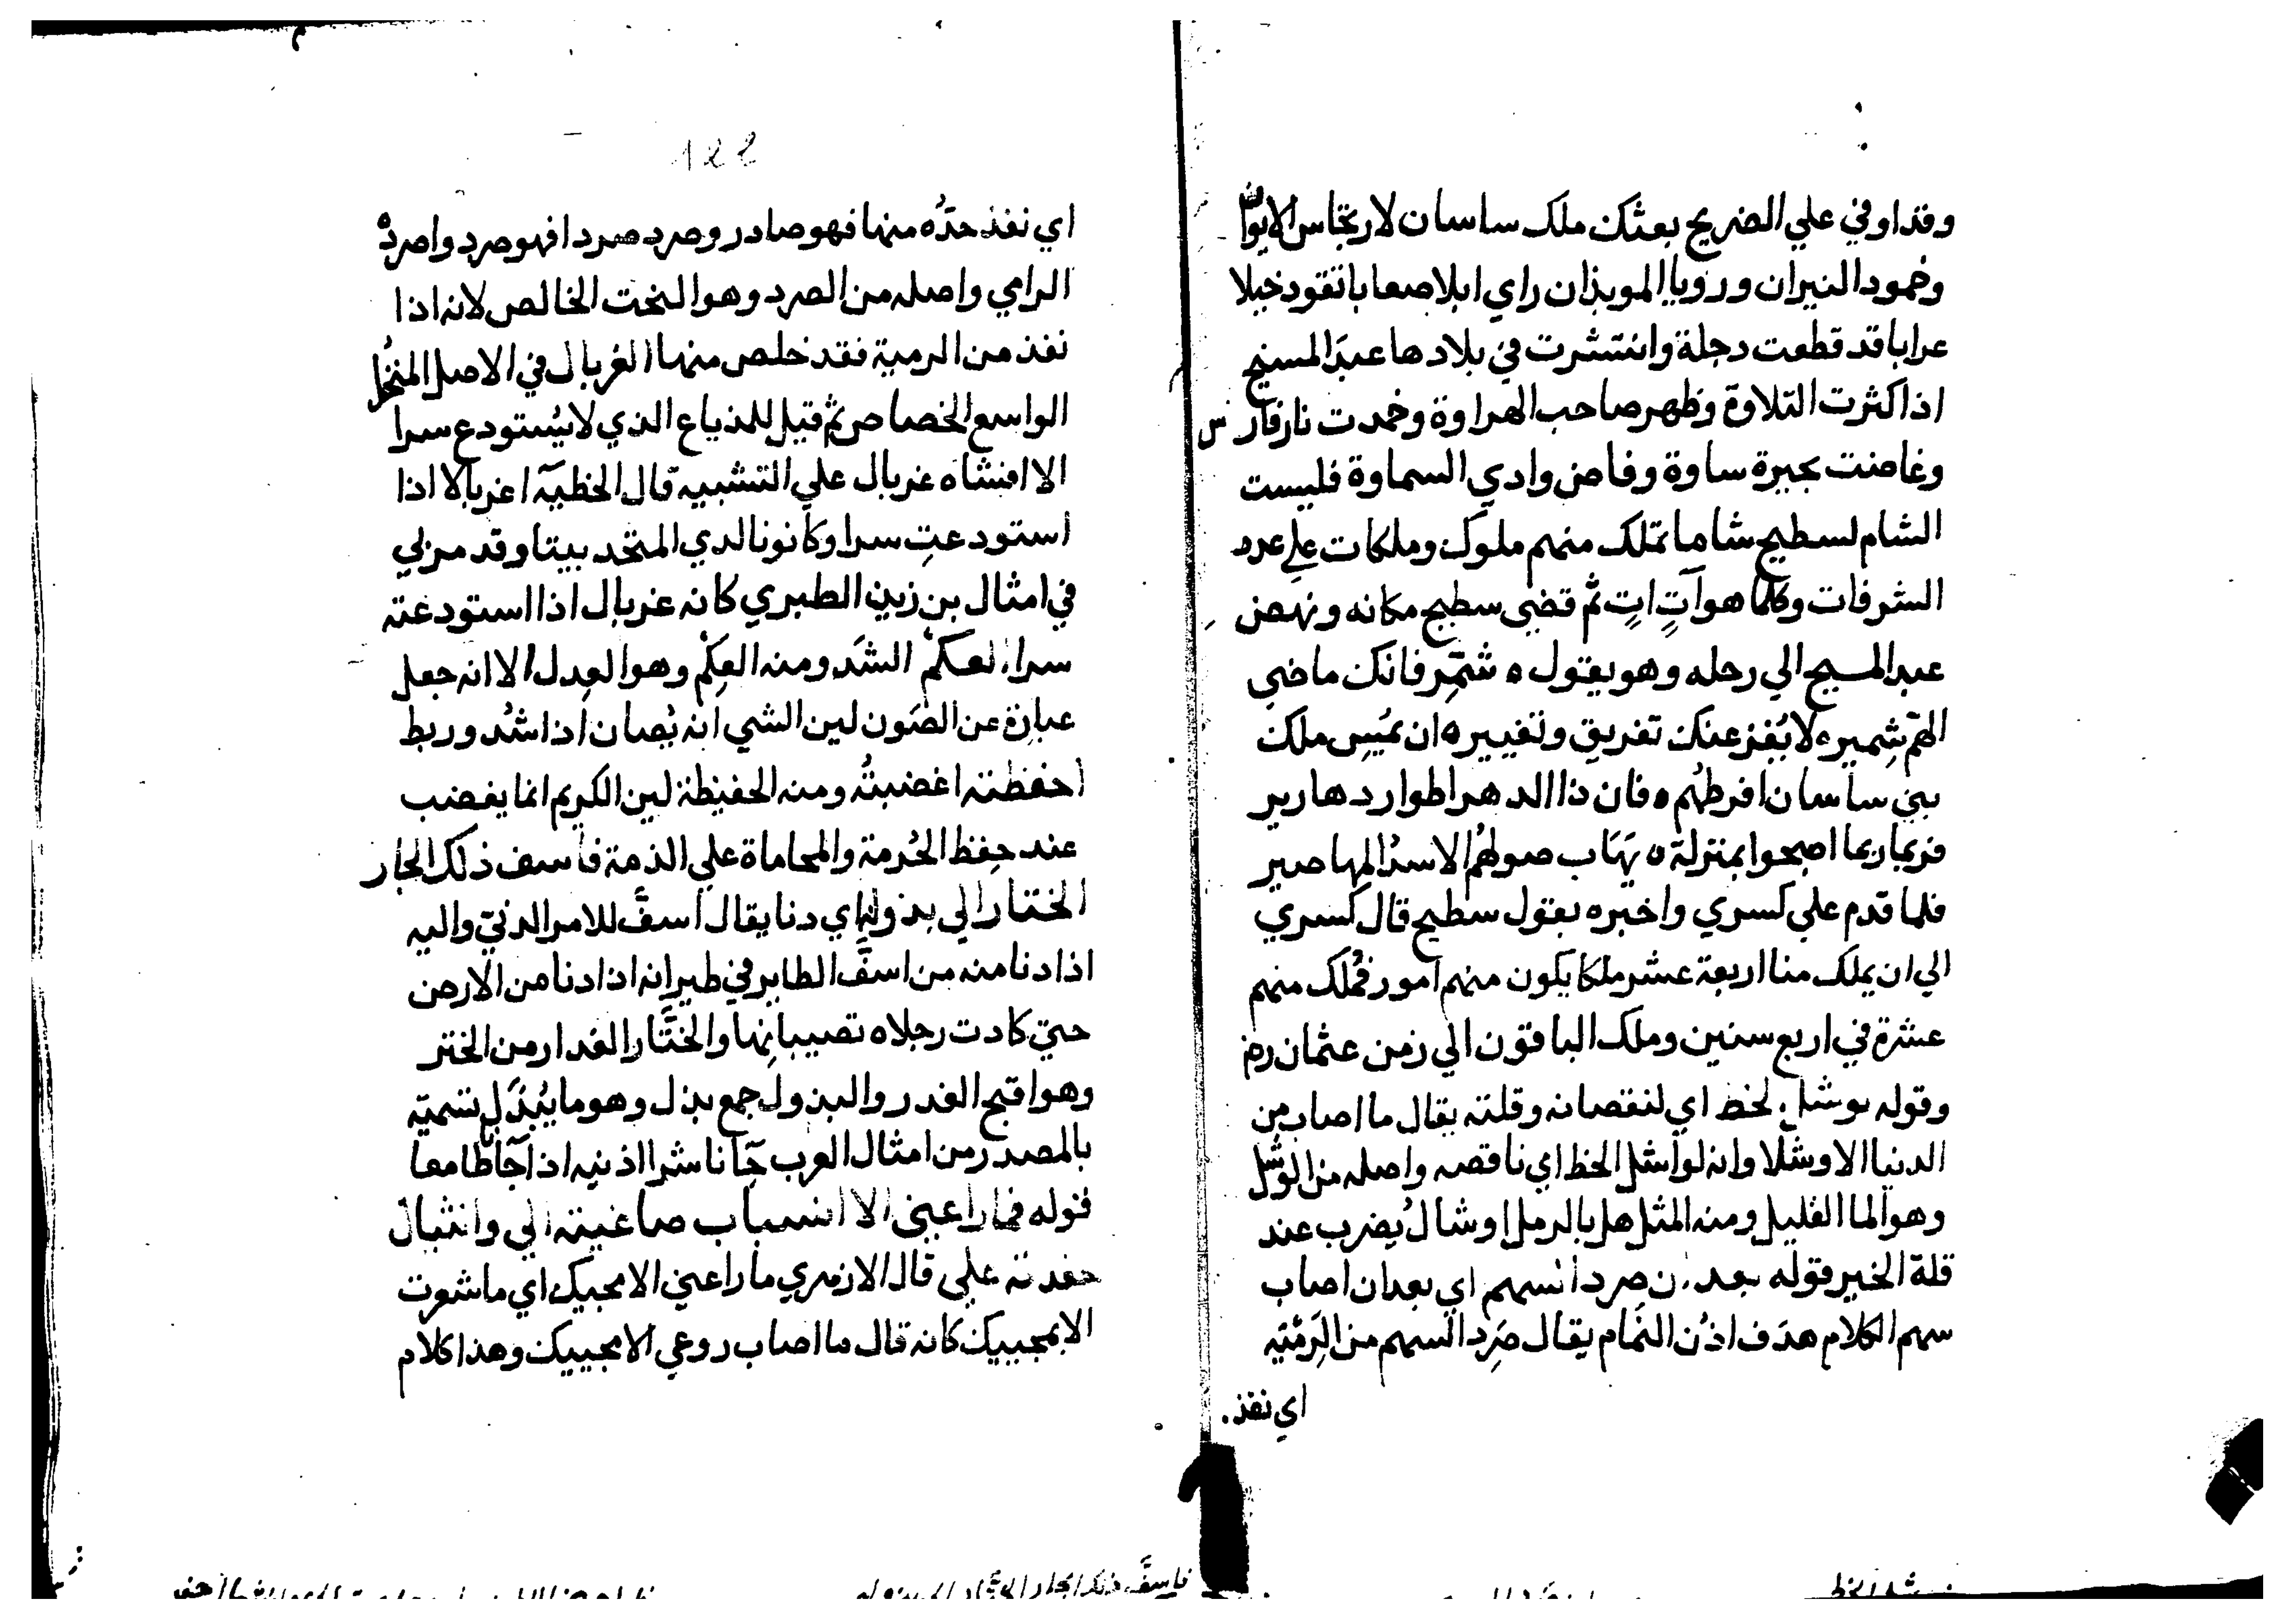 وقداوفي علي الضريح بعثك ملك ساسان لارتجاس الايوان
وخمود النيران ورويا الموبذان راي ابلا صعابا تقود خيلا
عرابا قد قطعت دجلة وانتشرت في بلادها عبد المسيح
اذا كثرت التلاوة وظهر صاحب الهراوة وخمدت نار فارس
وغاضت بحيرة ساوة وفاض وادي السماوة فليست
الشام لسطيح شاما تملك منهم ملوك وملكات علي عدد
الشرفات وكلما هو آتٍ اتٍ ثم قضي سطيح مكانه ونهض
عبد المسيح الي رحله وهو يقول ه شمّر فانك ماضي
الهمّ شمير ه لا يُفزعنك تفريق وتغيير ه ان يمُس ملك
بني ساسان افرطهُم ه فان ذا الدهر اطوار دهارير
فربما ربما اصبحوا بمنزلة ه يهَاب صولهُم الاسدُ المهاصير
فلما قدم علي كسري واخبره بقول سطيح قال كسري
الي ان يملك منا اربعة عشر ملكا يكون منهم امور فملك منهم
عشرة في اربع سنين وملك الباقون الي زمن عثمان رض
وقوله بوشل لحظ اي لنقصانه وقلته يقال ما اصاب من
الدنيا الا وشلا وانه لواشل الحظ اي ناقصه واصله من الوشل
وهو الما القليل ومنه المثل هل بالرمل اوشالُ يُضرب عند
قلة الخير قوله بعد ان صرد السهم اي بعدان اصاب
سهم الكلام هدَف اذُن النمَّام يقال صَرِد السهم من الرَمّيَه
اي نفذ
اي نفذ حدّه منها فهو صادر وصرد صردا فهو صرد واصردهُ
الرامي واصله من الصرد وهو البخت الخالص لانه اذا
نفذ من الرمية فقد خلص منها الغربال في الاصل المنخُل
الواسع الخصاص ثم قيل للمذياع الذي لا يُستودع سرا
الا افشاه غربال علي التشبيه قال الخطيَه اغربالا اذا
استودعتِ سرا وكانونا لدي المتحد بيتا وقد مر لي
في امثال بن زين الطبري كانه غربال اذا استودعته
سرا العكمُ الشَد ومنه العِكْم وهو العِدل الا انه جعل
عبارة عن الصَون لين الشي انه يُصان اذا شُد وربط
احفظته اغضبتُه ومنه الحفيظة لين الكريم انما يغضب
عند حِفظ الحُرمة والمحاماة علي الذمة فاسف ذلك الجار
الختار الي بذوله اي دنا يقال اسفَّ للامر الدنيّ واليه
اذا دنا منه من اسفَّ الطاير في طيرانه اذا دنا من الارض
حتي كادت رجلاه تصيبانها والختَّار الغدار من الختر
وهو اقبح الغدر والبذول جمع بذل وهو ما يُبذَل تسميَة
بالمصدر من امثال العرب جَآ ناشرا اذنيه اذا جآ طامعا
قوله فما راعبني الا انسباب صاغيته الي وانثبال
حفدته علي قال الازهري ما راعني الا مجيك اي ما شعرت
الا بمجييك كانه قال ما اصاب روعي الا مجييك وهذا كلام